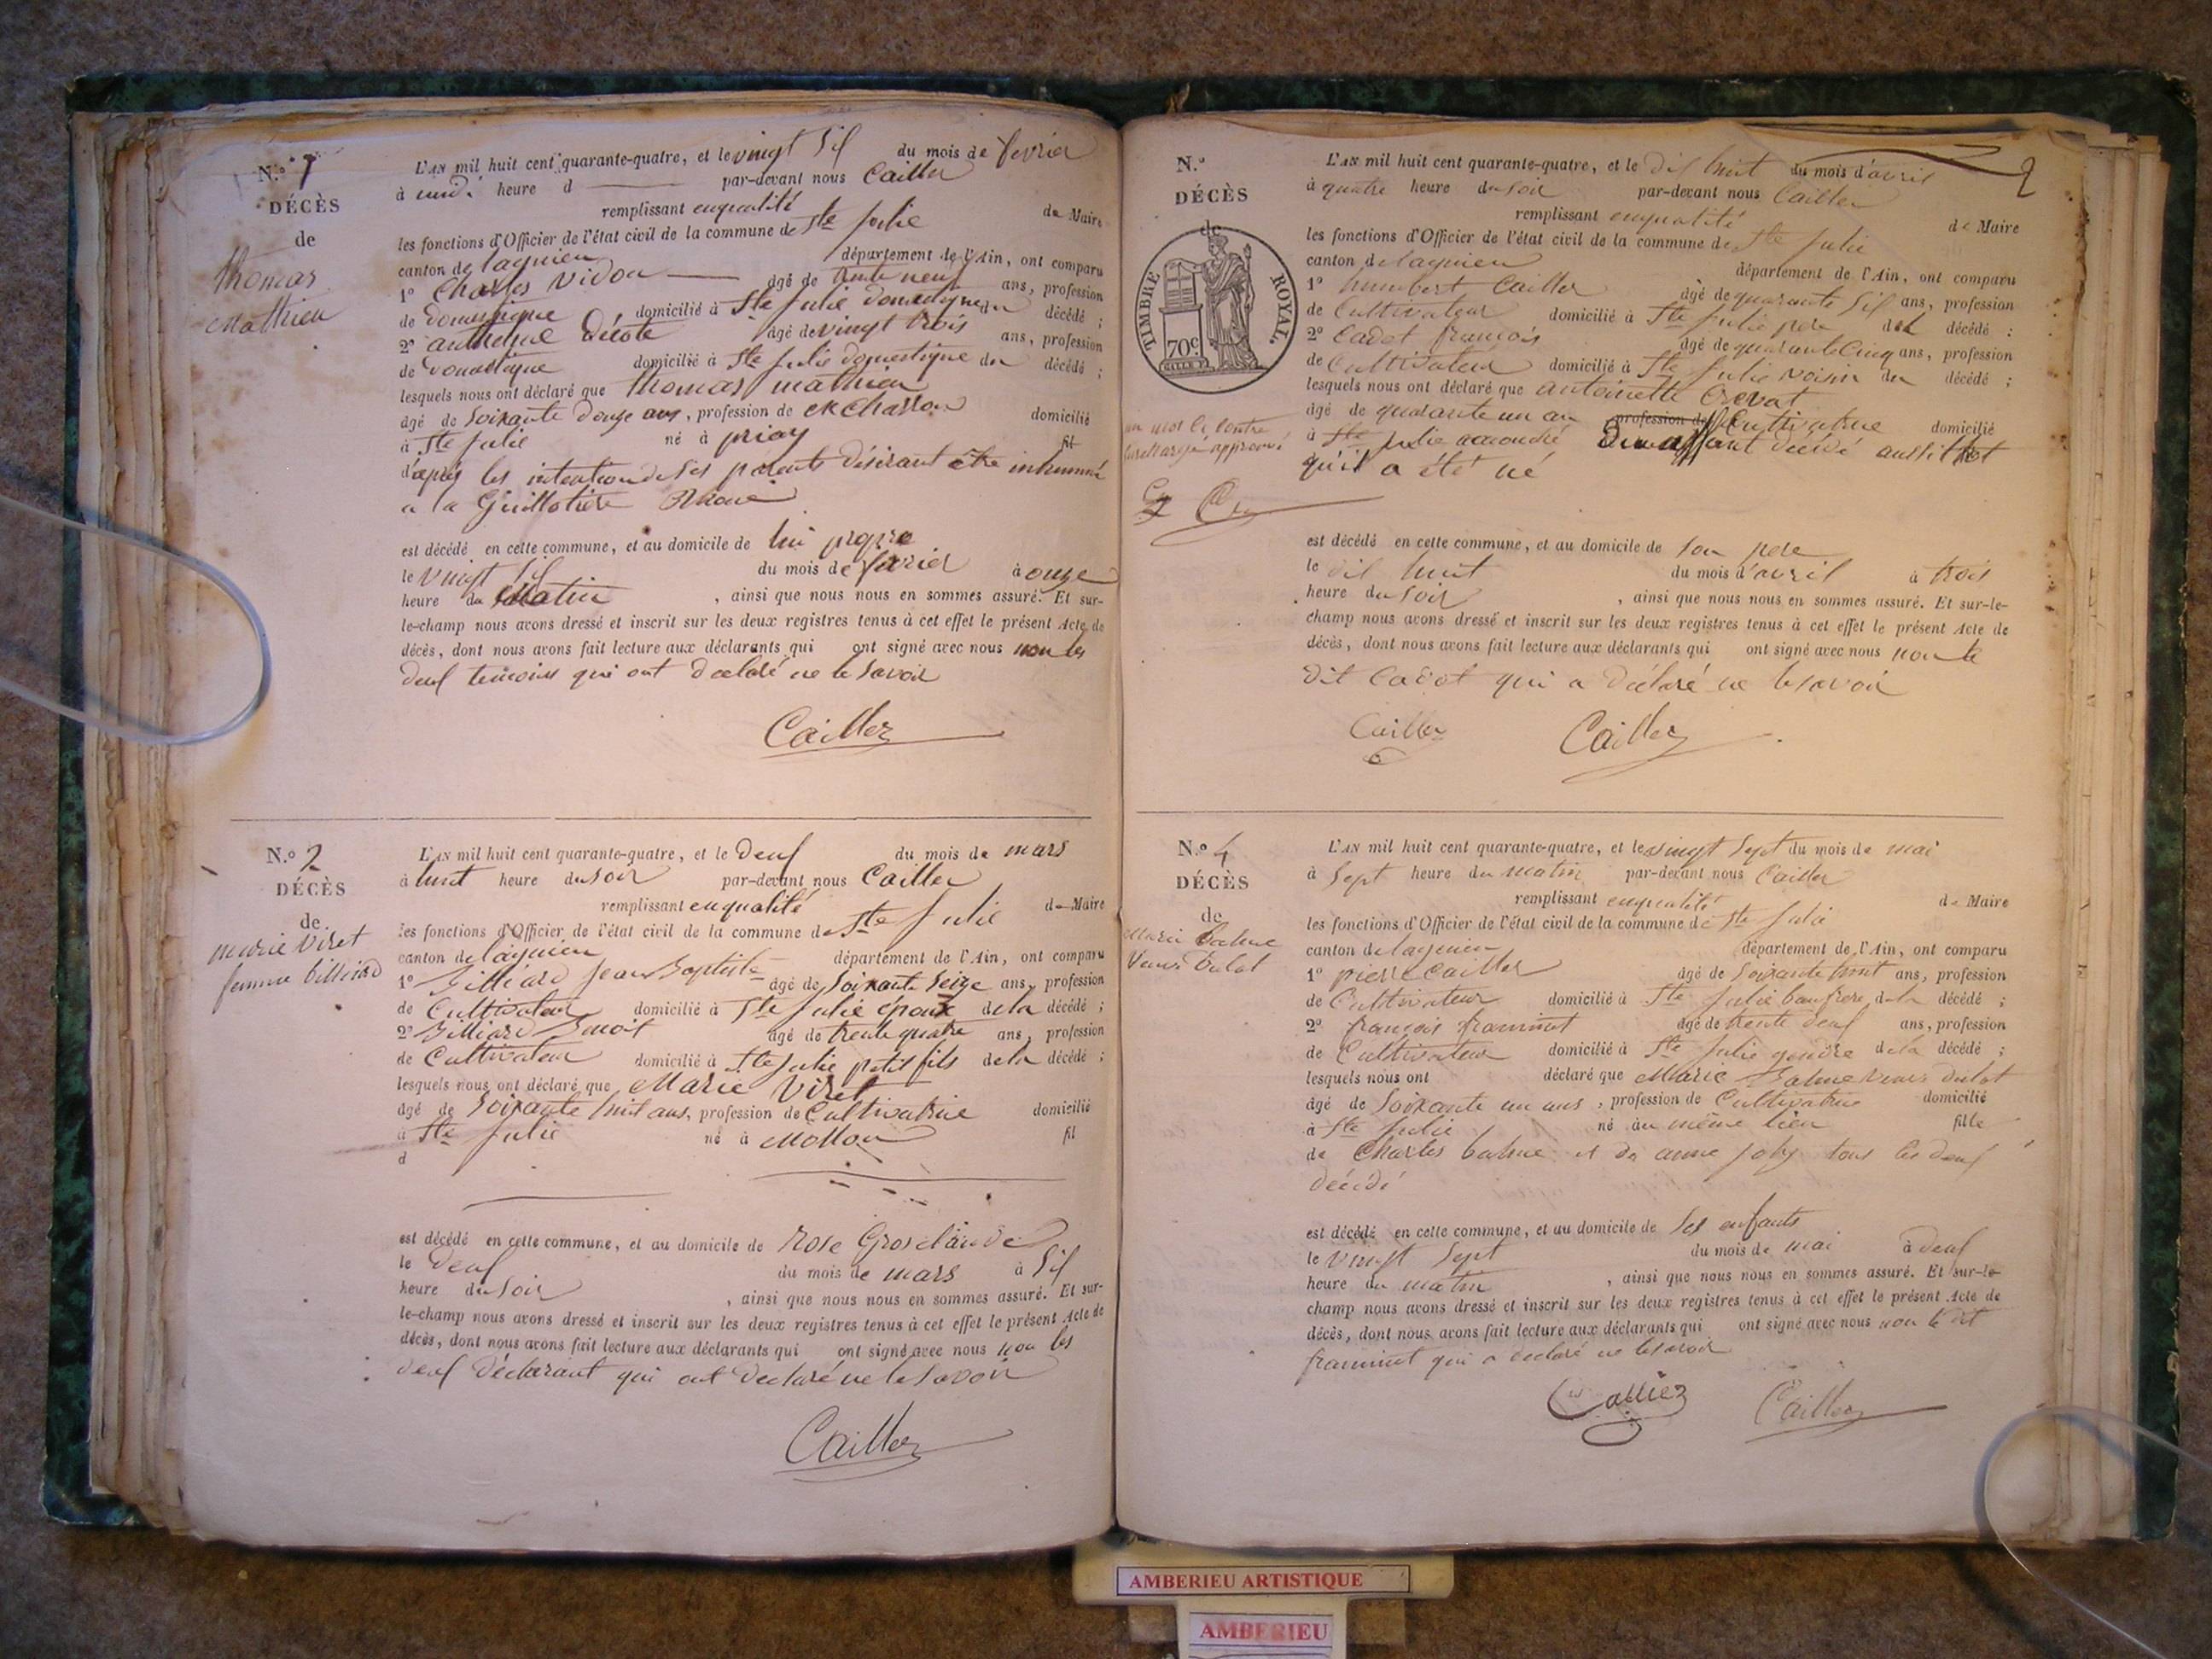 N.º 1
DÉCÈS
de
thomas
mathieu
L'AN mil huit cent quarante-quatre, et le vingt sif du mois de fevrier
à midi heure d par-devant nous Cailler
remplissant enqualité de Maire
les fonctions d'Officier de l'état civil de la commune de Ste Julie
canton de lagnieu département de l'Ain, ont comparu
1º Charles Vidon âgé de trente neuf ans, profession
de domestique domicilié à Ste Julie domestique du décédé ;
2º anthelme Décote âgé de vingt trois ans, profession
de domestique domicilié à Ste Julie domestique du décédé ;
lesquels nous ont déclaré que thomas mathieu
âgé de soixante douze ans, profession de ex charron domicilié
à Ste Julie né à priay fil
d'après les intention de ses parents désirant être inhummé
a la Guillotière Rhone
est décédé en cette commune, et au domicile de lui propre
le vingt sif du mois de fevrier à onze
heure du Matin, ainsi que nous nous en sommes assuré. Et sur-
le-champ nous avons dressé et inscrit sur les deux registres tenus à cet effet le présent Acte de
décès, dont nous avons fait lecture aux déclarants qui ont signé avec nous non les
deuf temoins qui ont declaré ne le savoir
Cailler
N.º 2
DÉCÈS
de
marie Viret
femme billiard
L'AN mil huit cent quarante-quatre, et le deuf du mois de mars
à huit heure du soir par-devant nous Cailler
remplissant enqualité de Maire
les fonctions d'Officier de l'état civil de la commune de Ste Julie
canton de lagnieu département de l'Ain, ont comparu
1º Billiard Jean Baptiste âgé de soixante seize ans, profession
de Cultivateur domicilié à Ste Julie époux de la décédé ;
2º Billiard Benoit âgé de trente quatre ans, profession
de Cultivateur domicilié à Ste Julie petit fils de la décédé ;
lesquels nous ont déclaré que Marie Viret
âgé de soixante huit ans, profession de Cultivatrice domicilié
à Ste Julie né à Mollon fil
d
est décédé en cette commune, et au domicile de rose Grosclaude
le deuf du mois de mars à sif
heure du soir, ainsi que nous nous en sommes assuré. Et sur-
le-champ nous avons dressé et inscrit sur les deux registres tenus à cet effet le présent Acte de
décès, dont nous avons fait lecture aux déclarants qui ont signé avec nous non les
deuf déclarant qui ont declaré ne le savoir
Cailler
2
N.º
DÉCÈS
de
TIMBRE ROYAL.
70c
un mot ci contre
approuvé
L'AN mil huit cent quarante-quatre, et le dif huit du mois d'avril
à quatre heure du soir par-devant nous Cailler
remplissant enqualité de Maire
les fonctions d'Officier de l'état civil de la commune de Ste Julie
canton de lagnieu département de l'Ain, ont comparu
1º humbert Cailler âgé de quarante sif ans, profession
de Cultivateur domicilié à Ste Julie pere du décédé ;
2º Cadot françois âgé de quarante cinq ans, profession
de Cultivateur domicilié à Ste Julie voisin du décédé ;
lesquels nous ont déclaré que antoinette Crevat
âgé de quarante un an profession de Cultivatrice domicilié
à Ste Julie accouché enfant décédé aussittot
qu'il a été né
est décédé en cette commune, et au domicile de son pere
le dif huit du mois d'avril à trois
heure du soir, ainsi que nous nous en sommes assuré. Et sur-le-
champ nous avons dressé et inscrit sur les deux registres tenus à cet effet le présent Acte de
décès, dont nous avons fait lecture aux déclarants qui ont signé avec nous non le
dit Cadot qui a déclaré ne le savoir
Cailler Cailler
N.º 4
DÉCÈS
de
Marie balme
Veuve Dulot
L'AN mil huit cent quarante-quatre, et le vingt sept du mois de mai
à sept heure du matin par-devant nous Cailler
remplissant enqualité de Maire
les fonctions d'Officier de l'état civil de la commune de Ste Julie
canton de lagnieu département de l'Ain, ont comparu
1º pierre Cailler âgé de soixante huit ans, profession
de Cultivateur domicilié à Ste Julie baufrere de la décédé ;
2º françois framinet âgé de trente deuf ans, profession
de Cultivateur domicilié à Ste Julie gendre de la décédé ;
lesquels nous ont déclaré que Marie Balme veuve dulot
âgé de soixante un ans, profession de Cultivatrice domicilié
à Ste Julie né au même lieu fille
de Charles balme et de anne joly tous les deuf
décédé
est décédé en cette commune, et au domicile de ses enfants
le vingt sept du mois de mai à deuf
heure du matin, ainsi que nous nous en sommes assuré. Et sur-le-
champ nous avons dressé et inscrit sur les deux registres tenus à cet effet le présent Acte de
décès, dont nous avons fait lecture aux déclarants qui ont signé avec nous non le dit
framinet qui a declaré ne le savoir
Calliez Cailler
AMBERIEU ARTISTIQUE
AMBERIEU